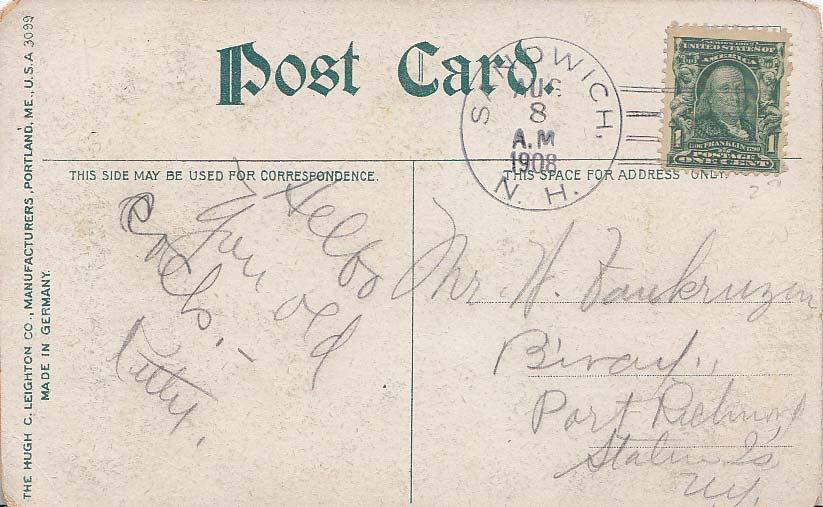 Post Card.
SANDWICH, N. H.
AUG
8
A.M
1908
UNITED STATES OF
AMERICA
1 1
FRANKLIN
POSTAGE
ONE CENT
THIS SIDE MAY BE USED FOR CORRESPONDENCE.
THIS SPACE FOR ADDRESS ONLY.
Hello
You old
Kitty.
Mr. W. Vankruzen
Port Richmond
Staten Is
N.Y.
THE HUGH C. LEIGHTON CO., MANUFACTURERS, PORTLAND, ME., U.S.A 3099
MADE IN GERMANY.